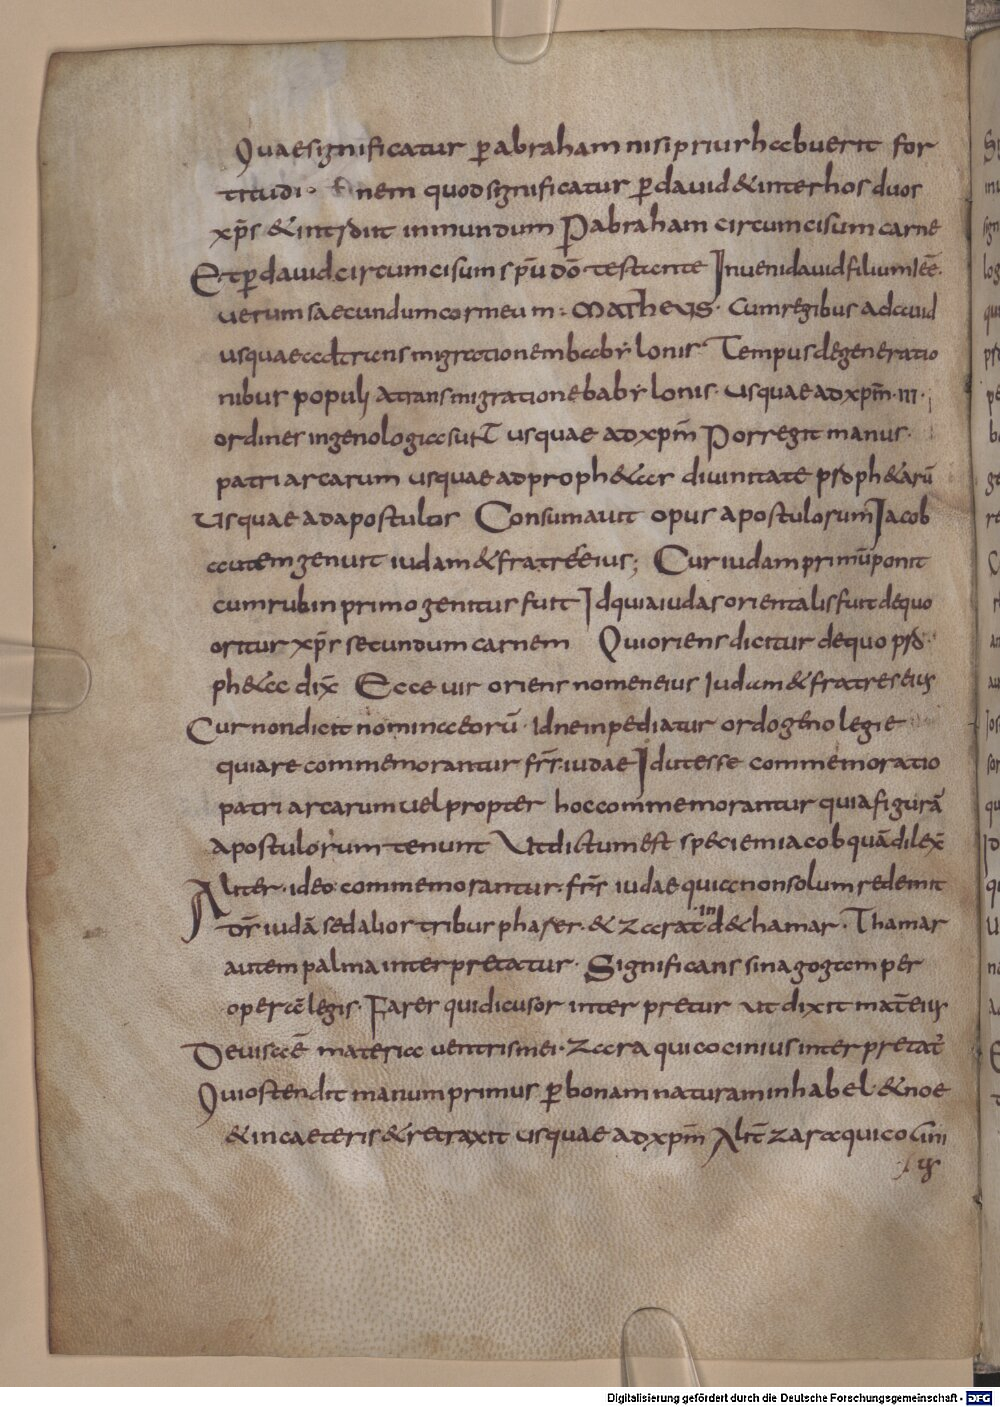 Quae significatur p̄ abraham nisi prius habuerit for
titudi · nem quod significatur p̄ david & inter hos duos
xp̄s & intrauit in mundum P̄ abraham circumcisum carne
Et p̄ david circumcisum sp̄u dō testante Inveni david filium iesse
uerum saecundum cor meum : MATHEUS · Cum regibus a david
usquae ad transmigrationem babylonis Tempus de generatio
nibus populi a transmigratione babylonis · usquae ad xpm̄ · III ·
ordines in genologia sunt usquae ad xpm̄ Porregit manus ·
patriarcarum usquae ad proph&as divinitate proph&arū
Usquae ad apostulos Consumauit opus apostulorum Iacob
autem genuit iudam & fratres eius ; Cur iudam primū ponit
cum rubin primogenitus fuit Id quia iudas orientalis fuit de quo
oritur xp̄s secundum carnem Qui oriens dicitur de quo pro
ph&a dix̄ Ecce uir oriens nomen eius Iudam & fratres eius
Cur non dicit nomina eorū · Id ne inpediatur ordo genolegie
quia re commemorantur fr̄s iudae Id ut esse commemoratio
patriarcarum uel propter hoc commemorantur quia figurā
apostulorum tenunt Ut dictum est speciem iacob quā dilex̄
Aliter · ideo commemorantur · fr̄s iudae quia non solum redemit
dn̄s iudā sed alios tribus phares · & zarat in d& hamar · Thamar
autem palma interpretatur · Significans sinagogam per
opera legis · Fares qui dicusor interpretur ut dixit mat̄ eius
Deuisa ē materia uentris mei · Zara qui cocinius interpretat̄
Qui ostendit manum primus p̄ bonam naturam in habel · & noe
& in caeteris & retraxit usquae ad xpm̄ Alit̄ zara qui cocini
us
Digitalisierung gefördert durch die Deutsche Forschungsgemeinschaft - DFG